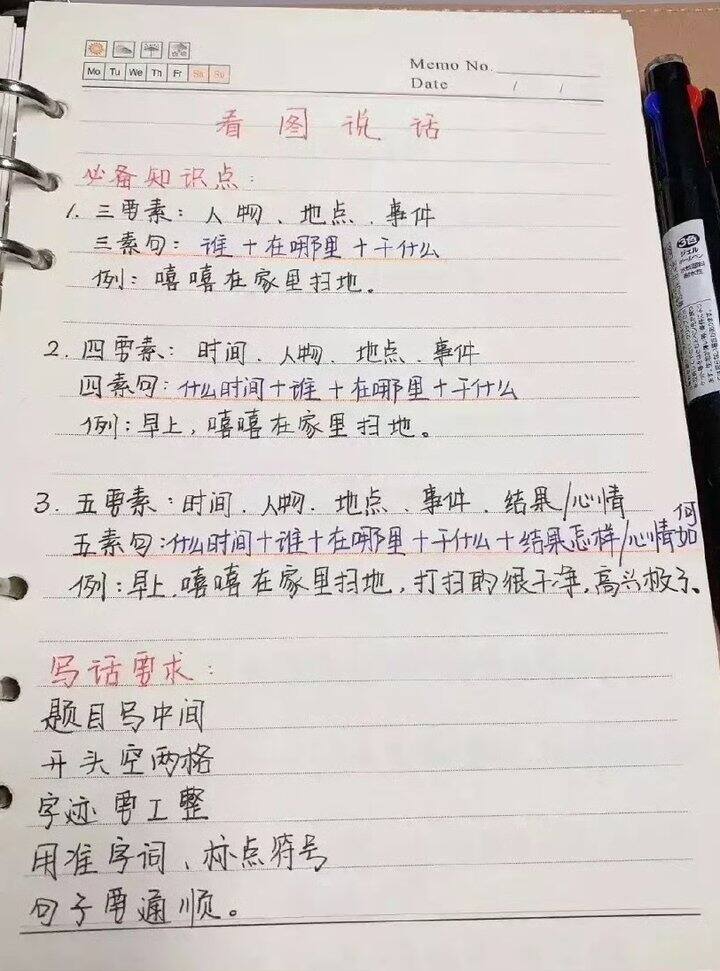 Memo No.
Mo Tu We Th Fr Sa Su
Date / /
看图说话
必备知识点:
1. 三要素: 人物、地点、事件
三素句: 谁+在哪里+干什么
例: 嘻嘻在家里扫地。
2. 四要素: 时间、人物、地点、事件
四素句: 什么时间+谁+在哪里+干什么
例: 早上,嘻嘻在家里扫地。
3. 五要素: 时间、人物、地点、事件、结果/心情
五素句: 什么时间+谁+在哪里+干什么+结果怎样/心情如何
例: 早上,嘻嘻在家里扫地,打扫的很干净,高兴极了、
写话要求:
题目写中间
开头空两格
字迹要工整
用准字词、标点符号
句子要通顺。
3色
ジェル
ボールペン